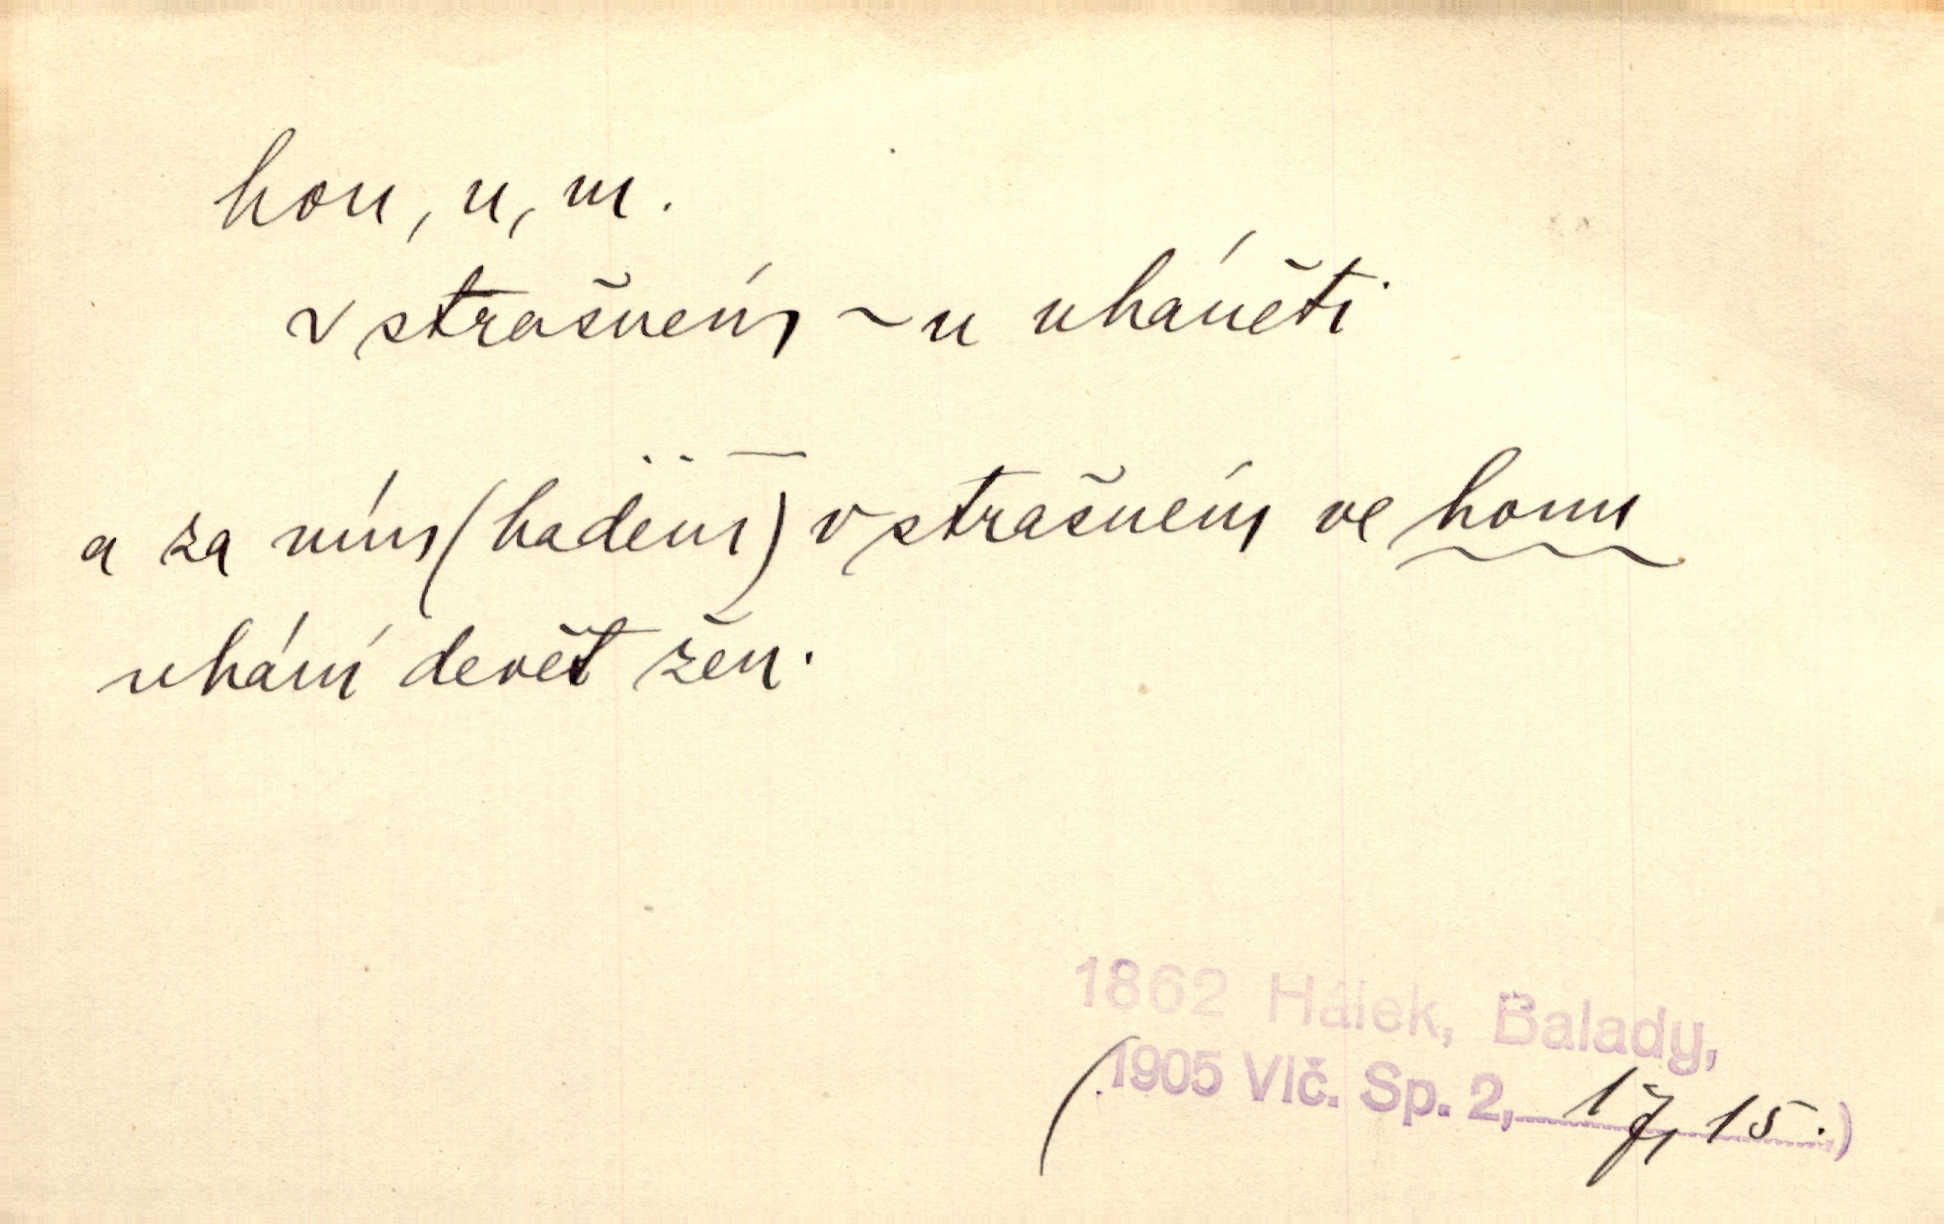 hon, u, m.
v strašném ~u uháněti
a za ním (hadem) v strašném ve honu
uhání devět žen.
1862 Hálek, Balady,
(1905 Vlč. Sp. 2, 17, 15.)